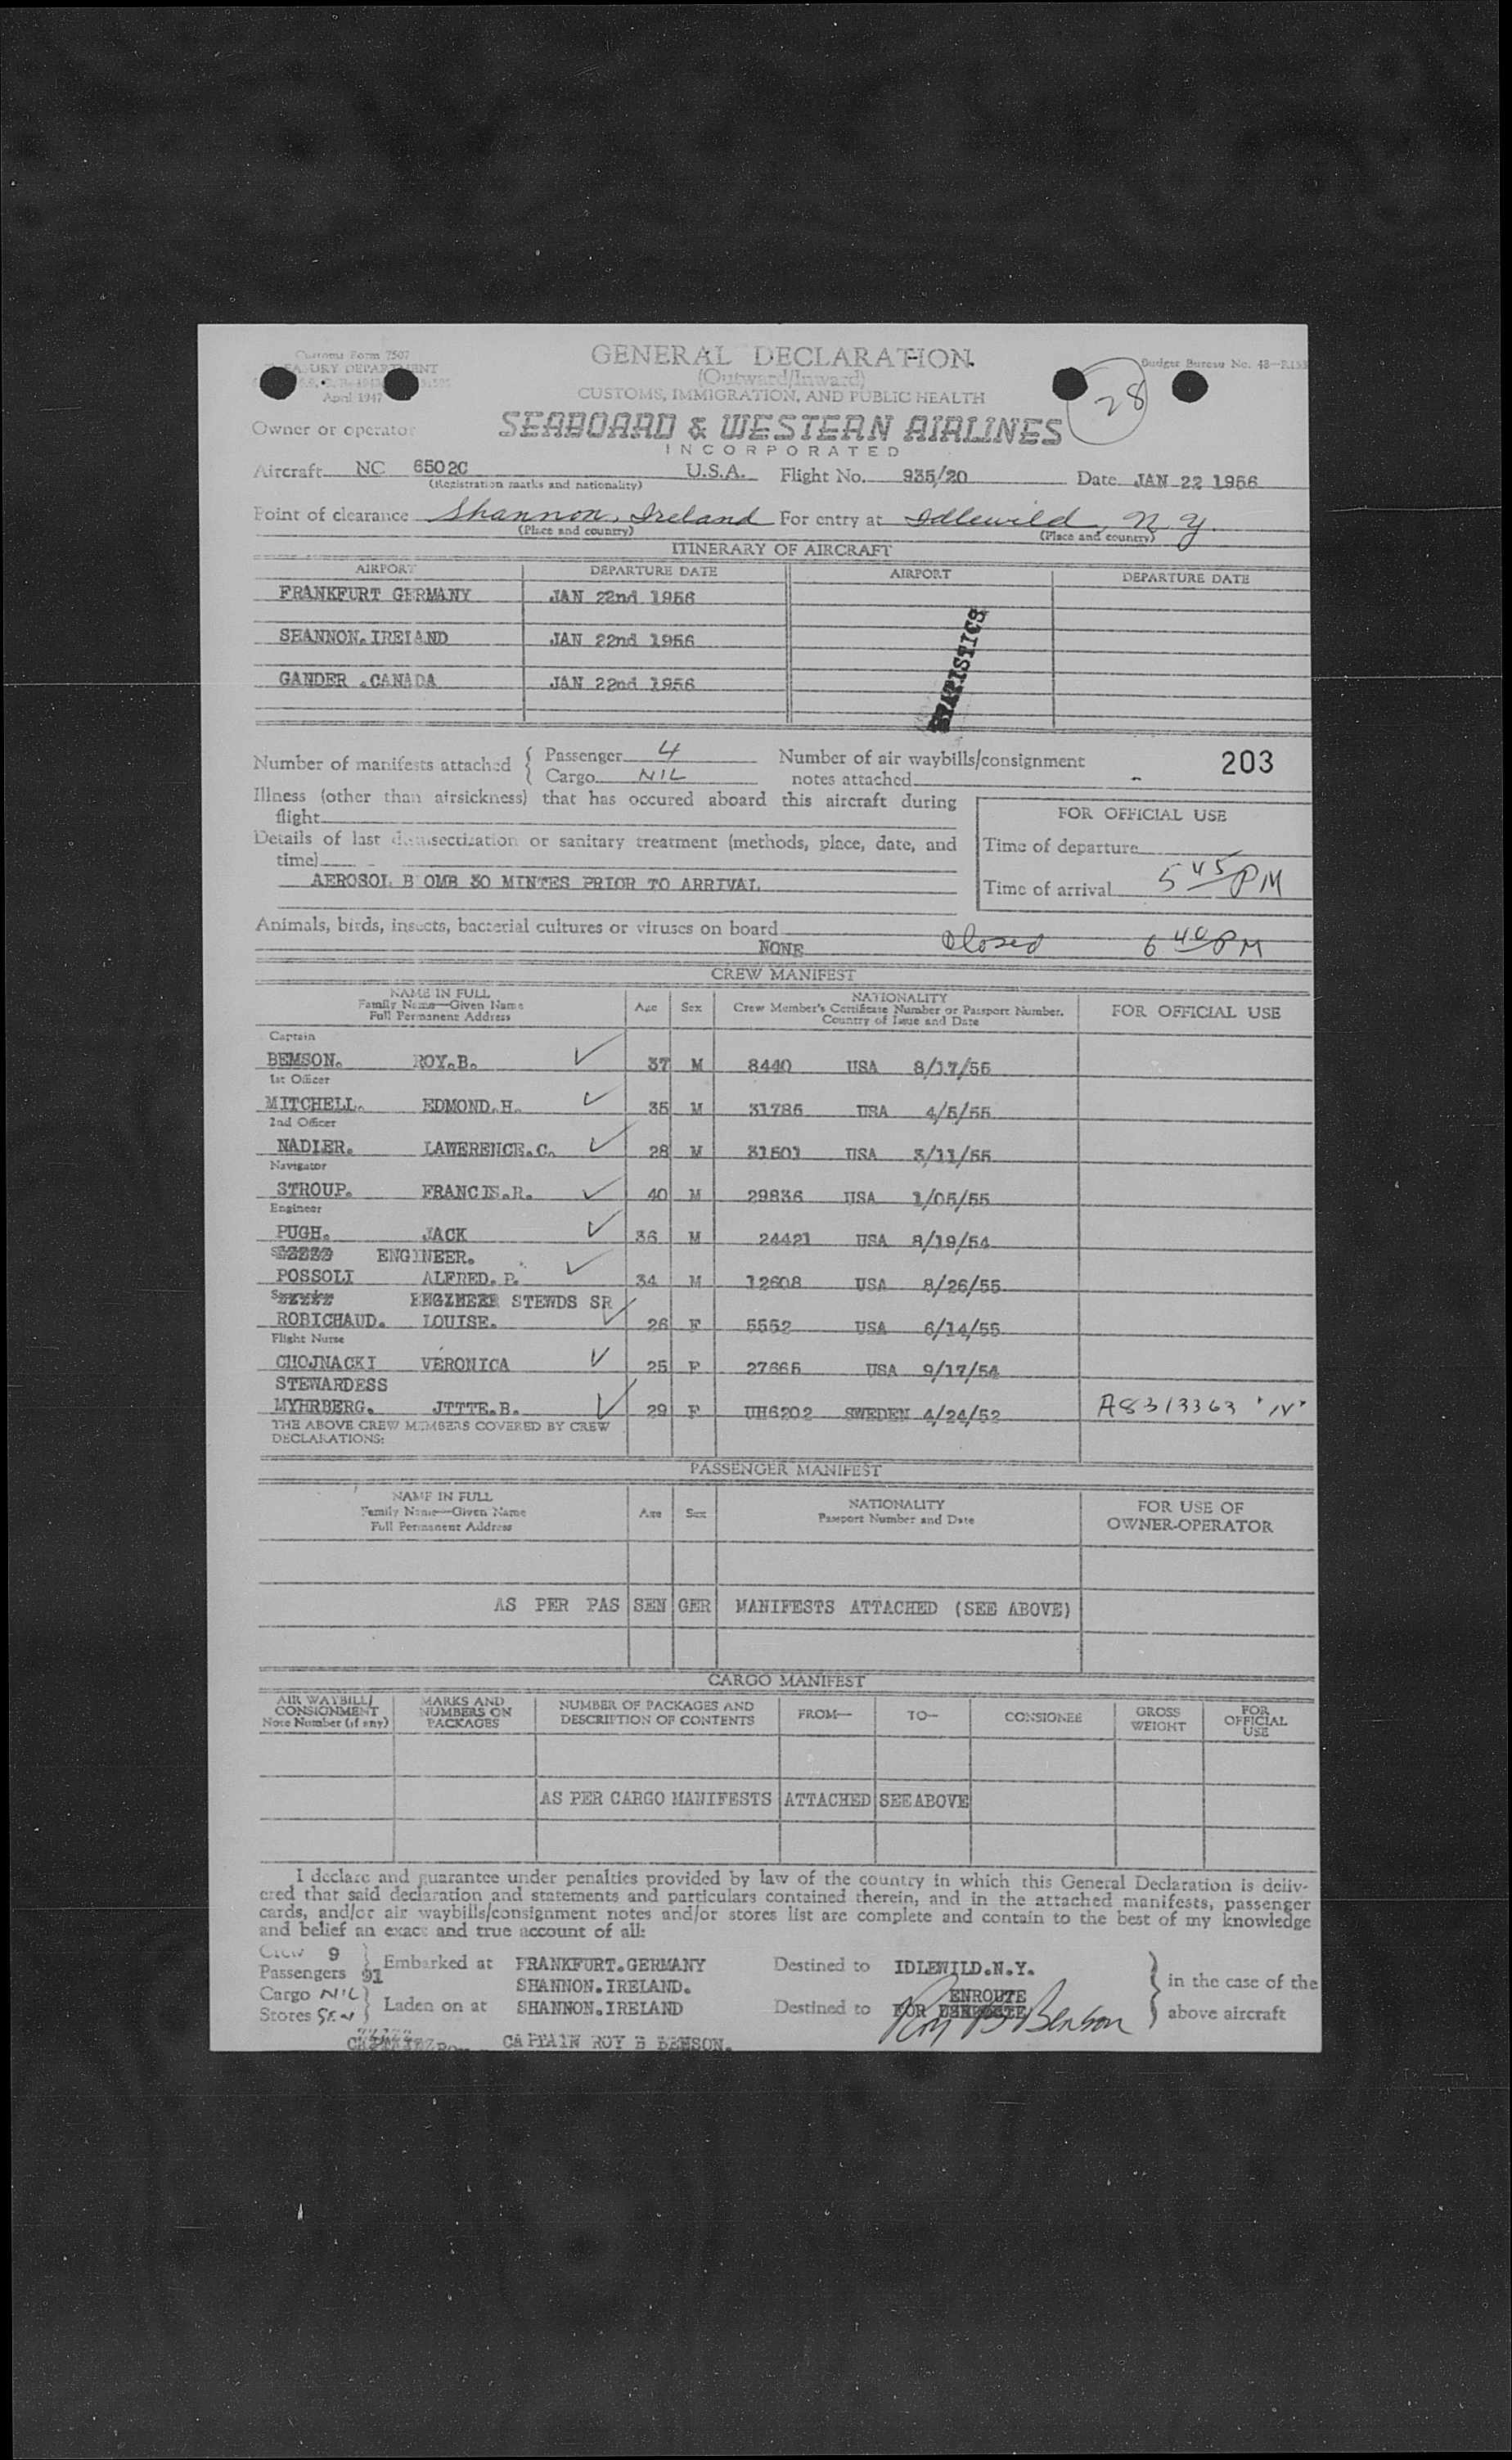 Customs Form 7507
TREASURY DEPARTMENT
April 1947
GENERAL DECLARATION
(Outward/Inward)
CUSTOMS, IMMIGRATION, AND PUBLIC HEALTH
Budget Bureau No. 48—R153
28
Owner or operator
SEABOARD & WESTERN AIRLINES
INCORPORATED
Aircraft NC 6502C U.S.A. Flight No. 935/20 Date JAN 22 1956
(Registration marks and nationality)
Point of clearance Shannon, Ireland For entry at Idlewild, N.Y.
(Place and country) (Place and country)
ITINERARY OF AIRCRAFT
AIRPORT DEPARTURE DATE AIRPORT DEPARTURE DATE
FRANKFURT GERMANY JAN 22nd 1956
SHANNON.IRELAND JAN 22nd 1956
GANDER .CANADA JAN 22nd 1956
STATISTICS
Number of manifests attached { Passenger 4 Number of air waybills/consignment 203
Cargo NIL notes attached -
Illness (other than airsickness) that has occured aboard this aircraft during
flight
FOR OFFICIAL USE
Details of last disinsectization or sanitary treatment (methods, place, date, and
time)
Time of departure
AEROSOL B OMB 30 MINTES PRIOR TO ARRIVAL
Time of arrival 5 45 PM
Animals, birds, insects, bacterial cultures or viruses on board
NONE Closed 6 40 PM
CREW MANIFEST
NAME IN FULL
Family Name—Given Name
Full Permanent Address
Age Sex
NATIONALITY
Crew Member's Certificate Number or Passport Number.
Country of Issue and Date
FOR OFFICIAL USE
Captain
BEMSON. ROY.B. 37 M 8440 USA 8/17/55
1st Officer
MITCHELL. EDMOND.H. 35 M 31786 USA 4/5/55
2nd Officer
NADLER. LAWERENCE.C. 28 M 31501 USA 3/11/55
Navigator
STROUP. FRANCIS.R. 40 M 29836 USA 1/05/55
Engineer
PUGH. JACK 36 M 24421 USA 8/19/54
ENGINEER.
POSSOLI ALFRED. P. 34 M 12608 USA 8/26/55
STEWDS SR
ROBICHAUD. LOUISE. 26 F 5552 USA 6/14/55
Flight Nurse
CHOJNACKI VERONICA 25 F 27665 USA 9/17/54
STEWARDESS
MYHRBERG. JTTTE.B. 29 F UH6202 SWEDEN 4/24/52 A8313363 'N'
THE ABOVE CREW MEMBERS COVERED BY CREW
DECLARATIONS:
PASSENGER MANIFEST
NAME IN FULL
Family Name—Given Name
Full Permanent Address
Age Sex
NATIONALITY
Passport Number and Date
FOR USE OF
OWNER-OPERATOR
AS PER PAS SEN GER MANIFESTS ATTACHED (SEE ABOVE)
CARGO MANIFEST
AIR WAYBILL/
CONSIGNMENT
Note Number (if any)
MARKS AND
NUMBERS ON
PACKAGES
NUMBER OF PACKAGES AND
DESCRIPTION OF CONTENTS
FROM— TO— CONSIGNEE
GROSS
WEIGHT
FOR
OFFICIAL
USE
AS PER CARGO MANIFESTS ATTACHED SEE ABOVE
I declare and guarantee under penalties provided by law of the country in which this General Declaration is deliv-
ered that said declaration and statements and particulars contained therein, and in the attached manifests, passenger
cards, and/or air waybills/consignment notes and/or stores list are complete and contain to the best of my knowledge
and belief an exact and true account of all:
Crew 9
Passengers 91 } Embarked at FRANKFURT.GERMANY Destined to IDLEWILD.N.Y.
SHANNON.IRELAND.
in the case of the
Cargo NIL
Stores SEN } Laden on at SHANNON.IRELAND Destined to FOR ENROUTE
above aircraft
Roy B Benson
CAPTAIN ROY B BENSON.